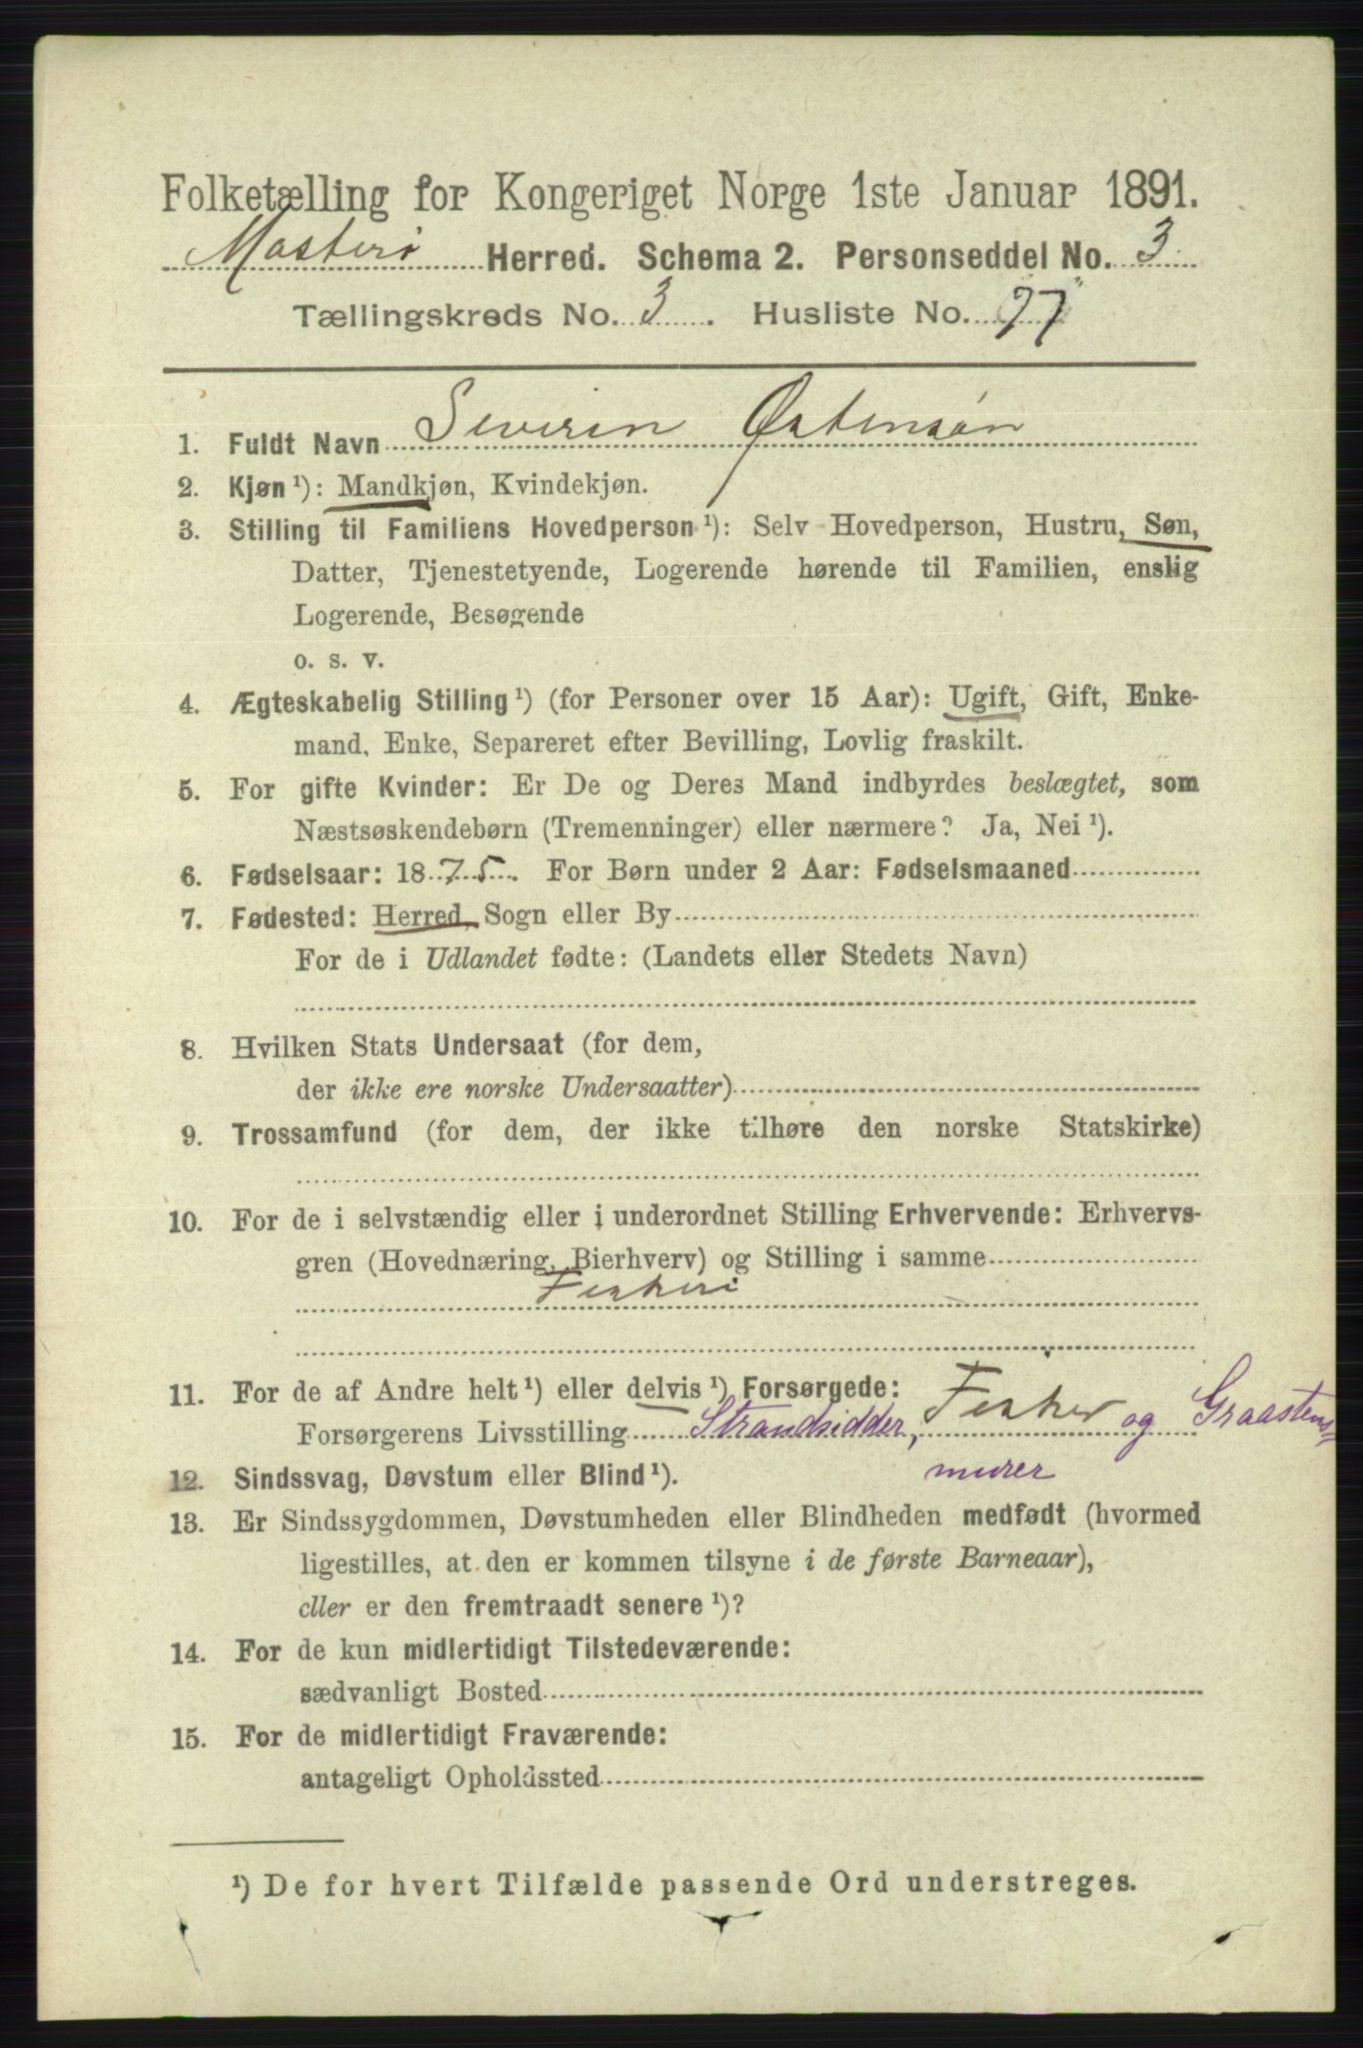 Folketælling for Kongeriget Norge 1ste Januar 1891.
Mosterø Herred. Schema 2. Personseddel No. 3
Tællingskreds No. 3. Husliste No. 77
1. Fuldt Navn Severin Østensøn
2. Kjøn ¹): Mandkjøn, Kvindekjøn.
3. Stilling til Familiens Hovedperson ¹): Selv Hovedperson, Hustru, Søn,
Datter, Tjenestetyende, Logerende hørende til Familien, enslig
Logerende, Besøgende
o. s. v.
4. Ægteskabelig Stilling ¹) (for Personer over 15 Aar): Ugift, Gift, Enke-
mand, Enke, Separeret efter Bevilling, Lovlig fraskilt.
5. For gifte Kvinder: Er De og Deres Mand indbyrdes beslægtet, som
Næstsøskendebørn (Tremenninger) eller nærmere? Ja, Nei ¹).
6. Fødselsaar: 1875. For Børn under 2 Aar: Fødselsmaaned
7. Fødested: Herred, Sogn eller By
For de i Udlandet fødte: (Landets eller Stedets Navn)
8. Hvilken Stats Undersaat (for dem,
der ikke ere norske Undersaatter)
9. Trossamfund (for dem, der ikke tilhøre den norske Statskirke)
10. For de i selvstændig eller i underordnet Stilling Erhvervende: Erhvervs-
gren (Hovednæring, Bierhverv) og Stilling i samme
Fiskeri
11. For de af Andre helt ¹) eller delvis ¹) Forsørgede:
Forsørgerens Livsstilling Strandsidder, Fisker og Graastens=
murer
12. Sindssvag, Døvstum eller Blind ¹).
13. Er Sindssygdommen, Døvstumheden eller Blindheden medfødt (hvormed
ligestilles, at den er kommen tilsyne i de første Barneaar),
eller er den fremtraadt senere ¹)?
14. For de kun midlertidigt Tilstedeværende:
sædvanligt Bosted
15. For de midlertidigt Fraværende:
antageligt Opholdssted
¹) De for hvert Tilfælde passende Ord understreges.